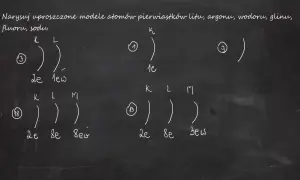 Narysuj uproszczone modele atomów pierwiastków litu, argonu, wodoru, glinu,
fluoru, sodu
K L
3
2e 1eW
K
1
1e
3
K L M
18
2e 8e 8eW
K L M
2e 8e 3eW